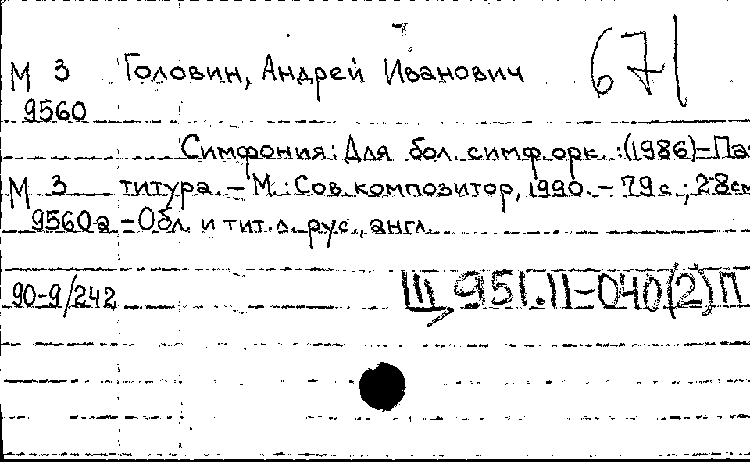 М 3 Головин, Андрей Иванович 671
9560
Симфония: Для бол. симф. орк. : (1986) - Па
М 3 титура. - М.: Сов. композитор, 1990. - 79 с.; 28 см
9560а - Обл. и тит. л. рус., англ.
90-9/242 III 951.11-040(2) П